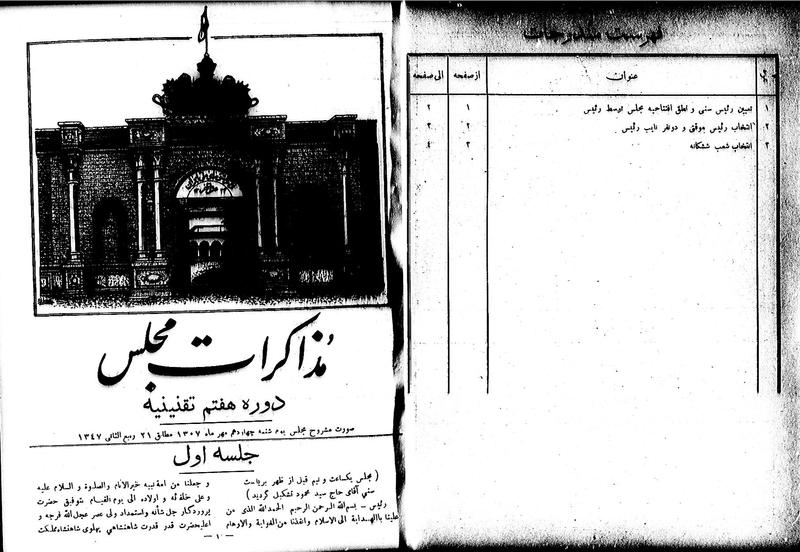 فهرست مندرجات
عنوان از صفحه الی صفحه
۱ تعیین رئیس سنی و نطق افتتاحیه مجلس توسط رئیس ۱ ۲
۲ انتخاب رئیس موقتی و دو نفر نایب رئیس ۲
۳ انتخاب شعب ششگانه ۴
مذاکرات مجلس
دوره هفتم تقنینیه
صورت مشروح مجلس یوم شنبه چهاردهم مهر ماه ۱۳۰۷ مطابق ۲۱ ربیع الثانی ۱۳۴۷
جلسه اول
( مجلس یکساعت و نیم قبل از ظهر بریاست
سنی آقای حاج سید محمود تشکیل گردید )
رئیس – بسم الله الرحمن الرحیم الحمدلله الذی من
علینا بالهدایة الی الاسلام وانقذنا من الغوایة والاوهام
و جعلنا من امة نبیه خیرالانام والصلوة و السلام علیه
و علی خلفائه و اولاده الی یوم القیام بتوفیق حضرت
پروردگار جل شأنه و استمداد ولی عصر عجل الله فرجه و
اعلیحضرت قدر قدرت شاهنشاهی پهلوی شاهنشاه مملکت
— ۱ —